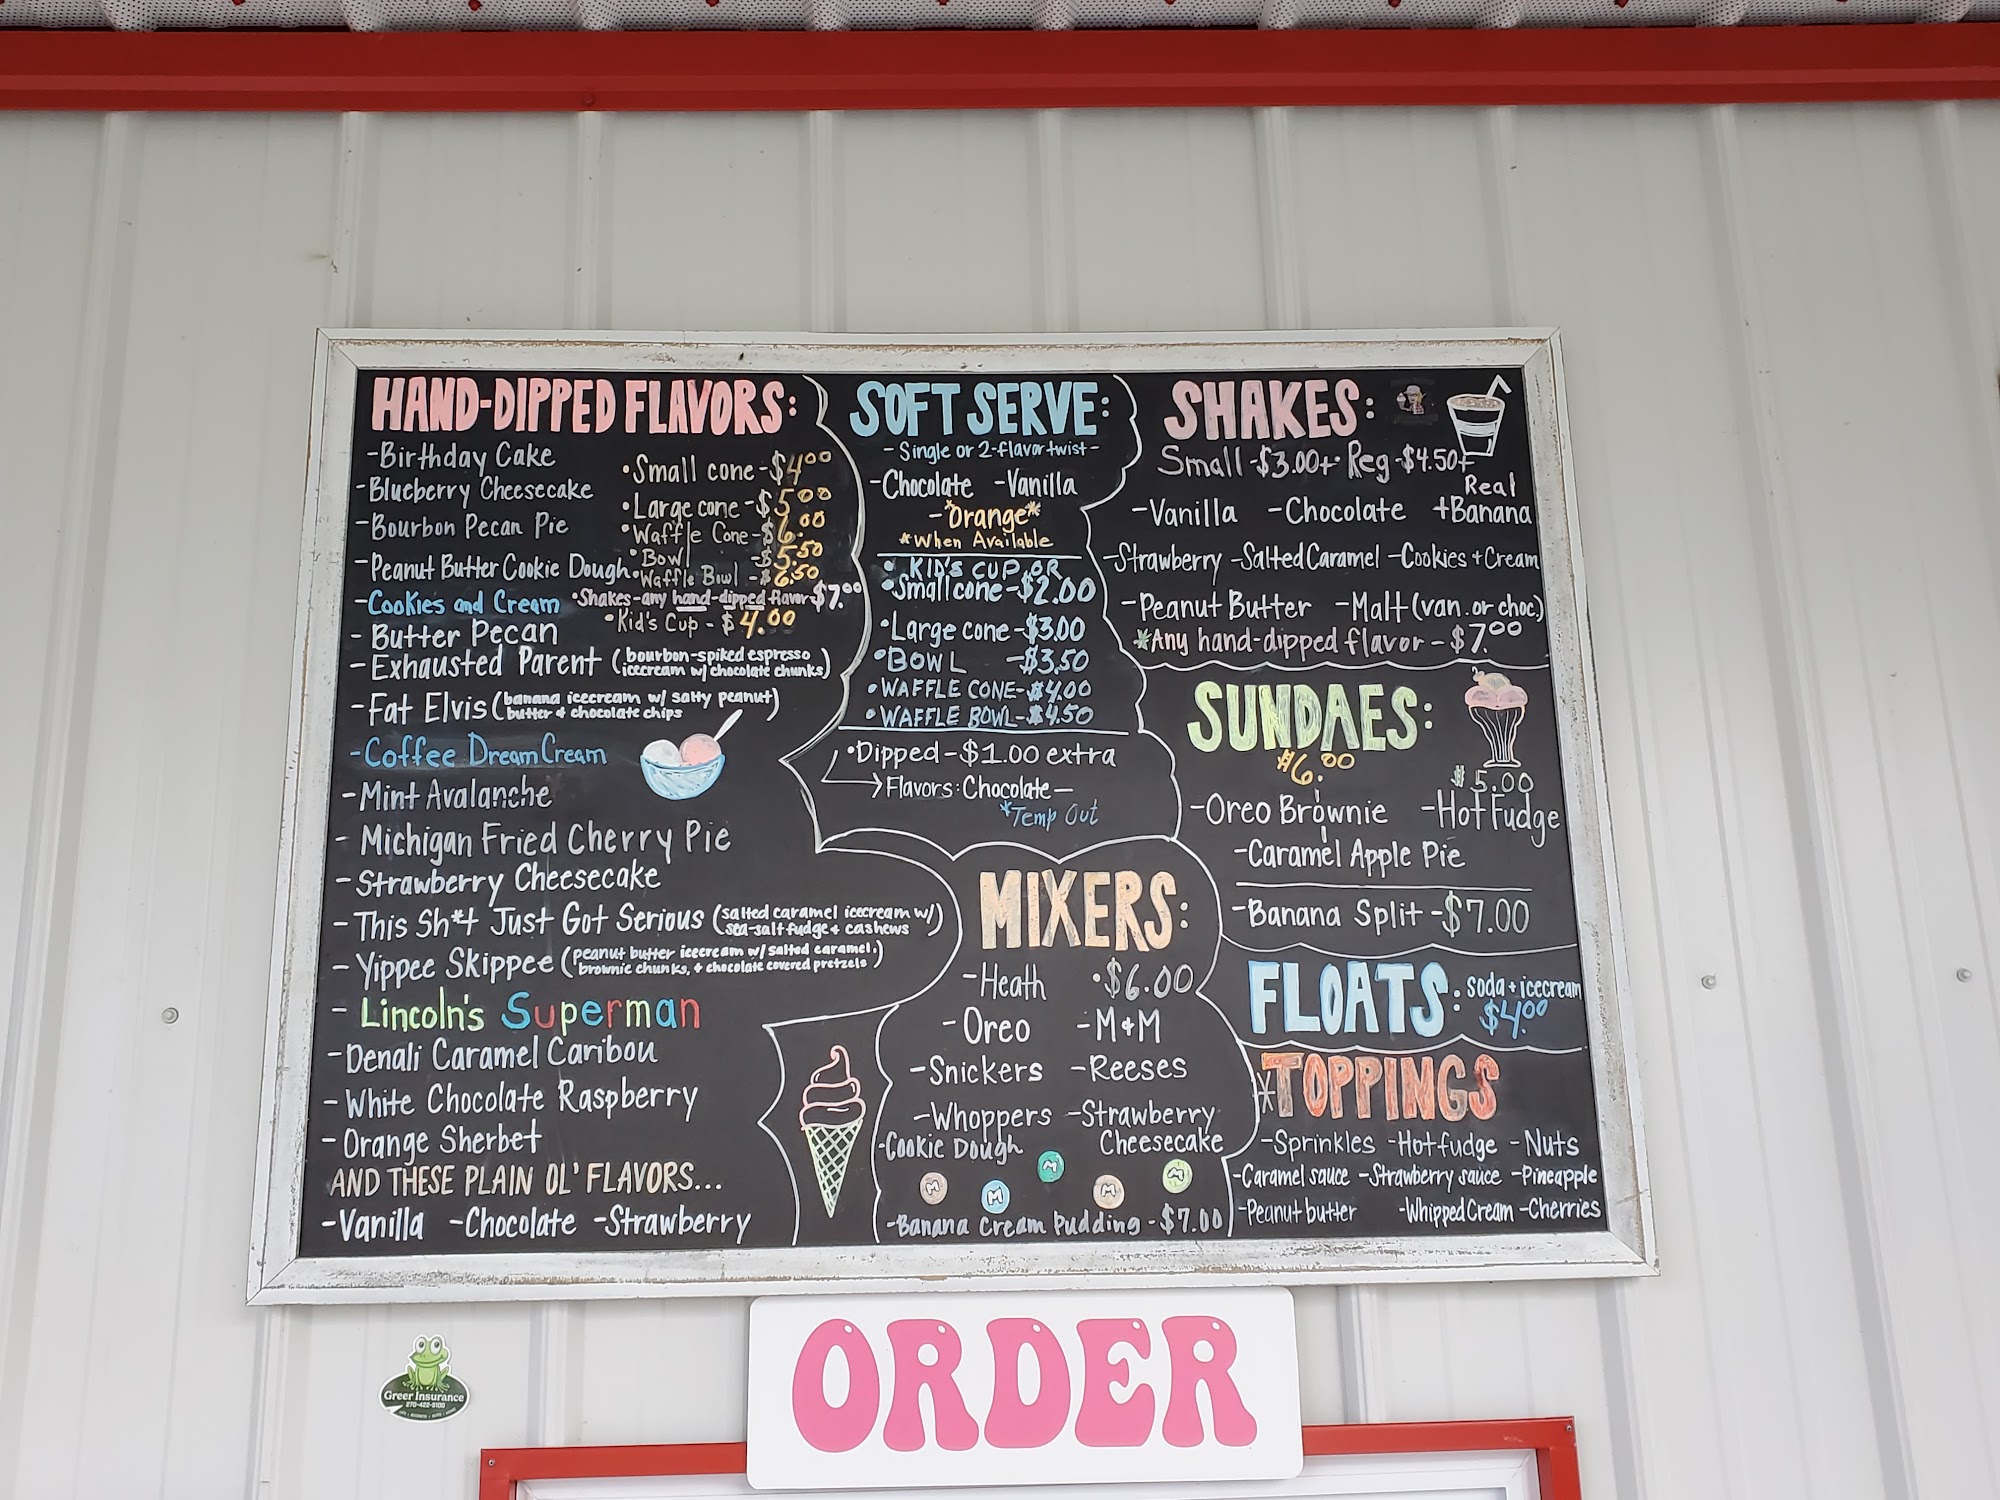 HAND-DIPPED FLAVORS:
-Birthday Cake
-Blueberry Cheesecake
-Bourbon Pecan Pie
-Peanut Butter Cookie Dough
-Cookies and Cream
- Butter Pecan
- Exhausted Parent (bourbon-spiked espresso
icecream w/ chocolate chunks)
- Fat Elvis (banana icecream w/ salty peanut)
butter & chocolate chips
-Coffee DreamCream
-Mint Avalanche
- Michigan Fried Cherry Pie
- Strawberry Cheesecake
- This Sh*t Just Got Serious (salted caramel icecream w/)
sea-salt fudge & cashews
- Yippee Skippee (peanut butter icecream w/ salted caramel,)
brownie chunks, & chocolate covered pretzels
- Lincoln's Superman
-Denali Caramel Caribou
- White Chocolate Raspberry
- Orange Sherbet
AND THESE PLAIN OL' FLAVORS...
-Vanilla -Chocolate -Strawberry
•Small cone-$4.00
•Large cone-$5.00
•Waffle Cone-$6.00
•Bowl -$5.50
•Waffle Bowl -$6.50
•Shakes-any hand-dipped flavor-$7.00
•Kid's Cup - $4.00
SOFT SERVE:
-Single or 2-flavor twist-
-Chocolate -Vanilla
-*Orange*
*When Available
• KID'S CUP OR
•Small cone-$2.00
•Large cone-$3.00
•BOWL -$3.50
•WAFFLE CONE-$4.00
•WAFFLE BOWL-$4.50
•Dipped-$1.00 extra
→Flavors: Chocolate—
*Temp Out
MIXERS:
-Heath •$6.00
-Oreo -M&M
-Snickers -Reeses
-Whoppers -Strawberry
Cheesecake
-Cookie Dough
M
M
M
M
M
-Banana Cream Pudding-$7.00
SHAKES:
Small-$3.00+ Reg-$4.50+
-Vanilla -Chocolate +Real
Banana
-Strawberry -Salted Caramel -Cookies + Cream
-Peanut Butter -Malt (van. or choc)
*Any hand-dipped flavor-$7.00
SUNDAES:
$6.00
$5.00
-Oreo Brownie -Hot Fudge
-Caramel Apple Pie
-Banana Split-$7.00
FLOATS: soda+icecream
$4.00
*TOPPINGS
-Sprinkles -Hot fudge -Nuts
-Caramel sauce -Strawberry sauce -Pineapple
-Peanut butter -Whipped Cream -Cherries
ORDER
Greer Insurance
270-422-5100